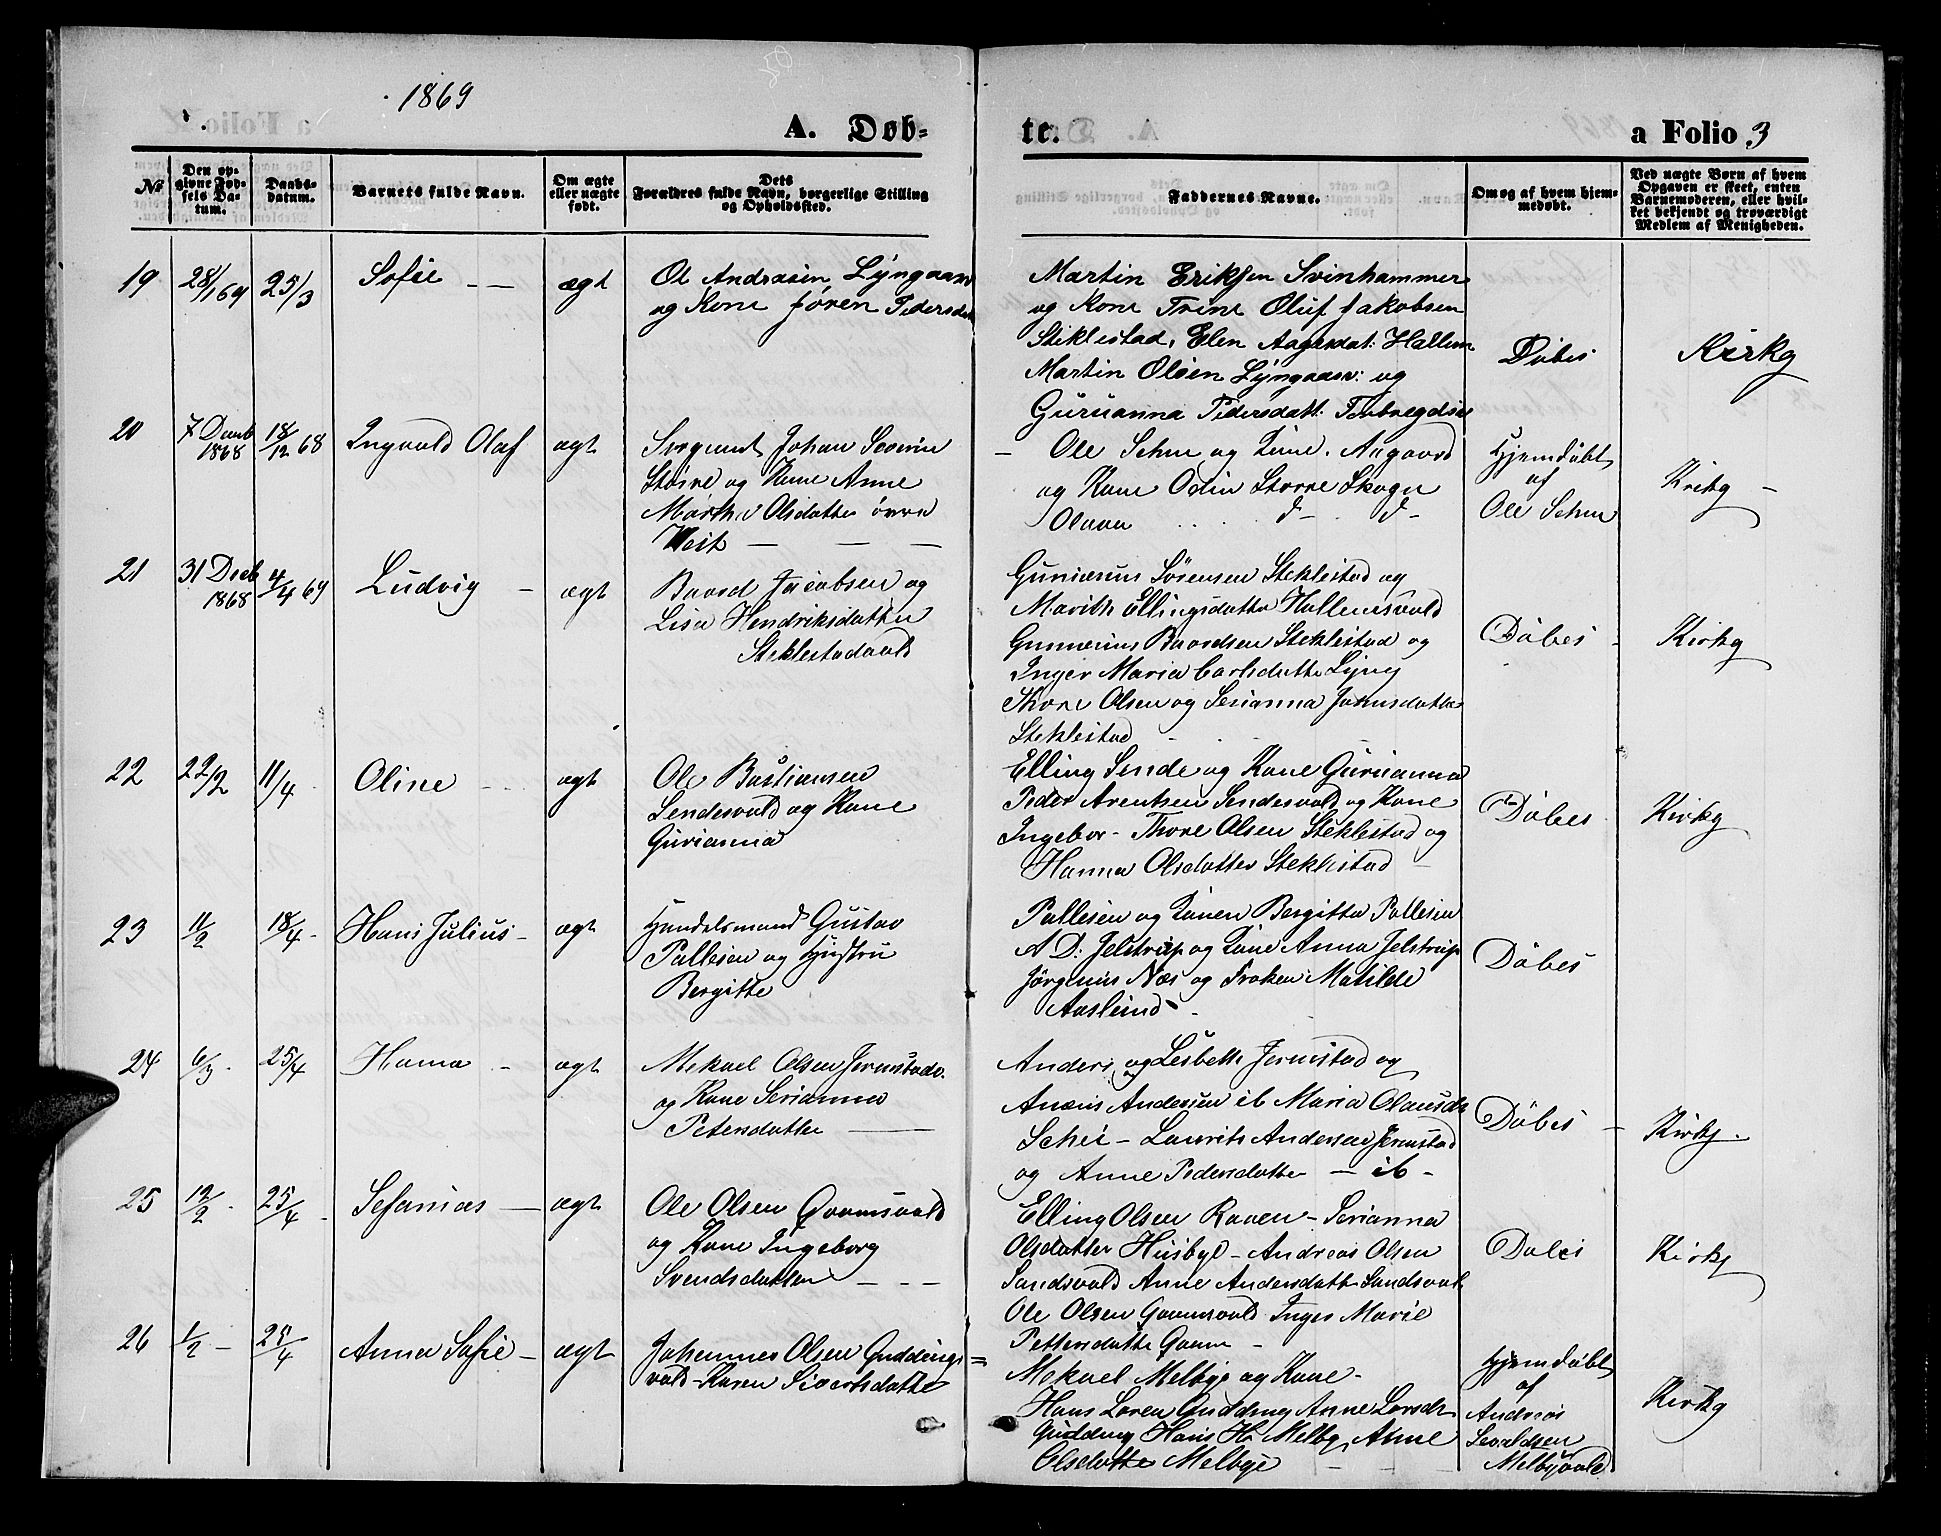 1869
A. Døb-
te.
a Folio 3
No
Den op-
givne Fød-
sels Da-
tum.
Daabs-
datum.
Barnets fulde Navn.
Om ægte
eller uægte
født.
Dets
Forældres fulde Navn, borgerlige Stilling
og Opholdssted.
Faddernes Navne.
Om og af hvem hjem-
medøbt.
Ved uægte Børn af hvem
Opgaven er skeet, enten
Barnemoderen, eller hvil-
ket bekjendt og troværdigt
Medlem af Menigheden.
19
28/1 69
25/3
Sofie
ægt
Ol Andrasen
og Kone Jøren
Martin Eriksen Svinhammer
og Kone Trine Oluf Jakobsen
Stiklestad, Elen Hallem
Martin Olsen og
Guruanna Pedersdatt.
Døbes
Kirkg
20
7 Decmb
1868
18/12 68
Ingvald Olaf
ægt
Johan Severin
Støre og Kone Anne
Martha Olsdatter øvre
Veit
Ole Schei og Kone, Aagaard
og Kone Odin Storre Skogn
d- d-
Hjemdøbt
af
Ole Schei
Kirkg
21
31 Decb
1868
4/4 69
Ludvig
ægt
Baard Jacobsen og
Lisa Hendriksdatter
Steklestadvald
Gunnerius Sørensen Steklestad og
Marith Ellingsdatter Hallemsvald
Gunnerius Baardsen Steklestad og
Inger Maria Carlsdatter Lyng
Thore Olsen og Serianna Johnsdatter
Steklestad
Døbes
Kirkg
22
22/2
11/4
Oline
ægt
Ole Bastiansen
Sendesvald og Kone
Gurianna
Elling Sende og Kone Guruanna
Peder Arentsen Sendesvald og Kone
Ingebor - Thore Olsen Steklestad og
Hanna Olsdatter Steklestad
Døbes
Kirkg
23
11/2
18/4
Hans Julius
ægt
Handelsmand Gustav
Pallesen og Hustru
Bergitte
Pallesen og Konen Bergitta Pallesen
A D. Jelstrup og Kone Anna Jelstrup
Jørginus Næs og Frøken Matilde
Aaslund
Døbes
24
6/3
25/4
Hanna
ægt
Mekael Olsen Jermstadv.
og Kone Serianna
Petersdatter
Anders og Lesbeth Jermstad og
Anæus Andersen ib Maria Olausdr
Schei - Laurits Andersen Jermstad
og Anne Pedersdatter - ib -
Døbes
Kirkg.
25
12/2
25/4
Sefanias
ægt
Ole Olsen Qvamsvald
og Kone Ingeborg
Svendsdatter
Elling Olsen Raaen - Serianna
Olsdatter Husbye - Andreas Olsen
Sandsvald Anne Andersdatter Sandsval
Ole Olsen Qvamsvald Inger Marie
Pettersdatter Qvam
Døbes
Kirkg
26
1/2
25/4
Anna Sofie
ægt
Johannes Olsen Guddings=
vald - Karen Sivertsdatter
Mekael Melbye og Kone -
Hans Loren Gudding Anne Larsdr
Gudding Hans Hr Melby Anne
Olsdatter Melbye
Hjemdøbt
af
Andreas
Sevaldsen
Melbyvald
Kirkg